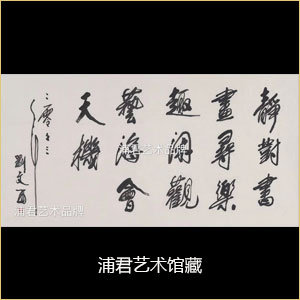 靜對書
畫尋樂
趣闊觀
藝海會
天機
劉文西
浦君艺术品牌
浦君艺术品牌
浦君艺术馆藏